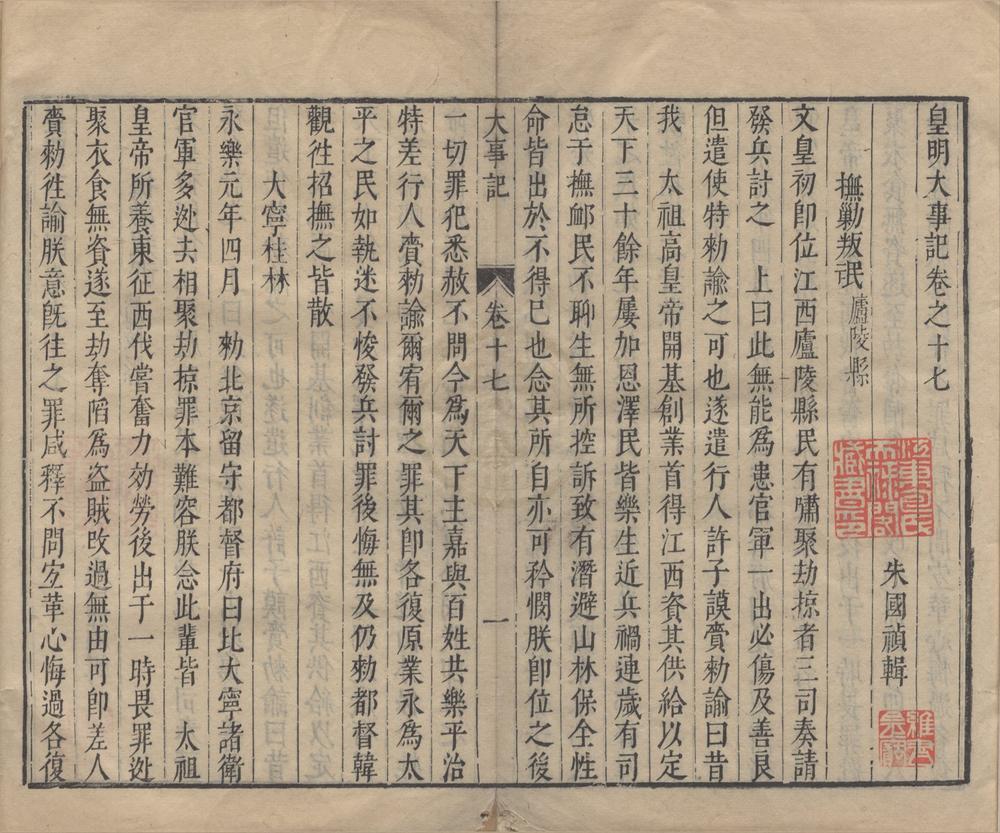 皇明大事記卷之十七
朱國禎輯
撫勦叛氓 廬陵縣
文皇初卽位江西廬陵縣民有嘯聚劫掠者三司奏請
發兵討之 上曰此無能爲患官軍一出必傷及善良
但遣使特勑諭之可也遂遣行人許子謨賫勑諭曰昔
我 太祖高皇帝開基創業首得江西資其供給以定
天下三十餘年屢加恩澤民皆樂生近兵禍連歲有司
怠于撫䘏民不聊生無所控訴致有潛避山林保全性
命皆出於不得已也念其所自亦可矜憫朕卽位之後
大事記 卷十七 一
一切罪犯悉赦不問今爲天下主嘉與百姓共樂平治
特差行人賫勑諭爾宥爾之罪其卽各復原業永爲太
平之民如執迷不悛發兵討罪後悔無及仍勑都督韓
觀徃招撫之皆散
大寧桂林
永樂元年四月 勑北京留守都督府曰比大寧諸衛
官軍多迯去相聚劫掠罪本難容朕念此輩皆 太祖
皇帝所養東征西伐嘗奮力效勞後出于一時畏罪迯
聚衣食無資遂至劫奪陷爲盗賊攺過無由可卽差人
賫勑徃諭朕意旣往之罪咸釋不問宐革心悔過各復